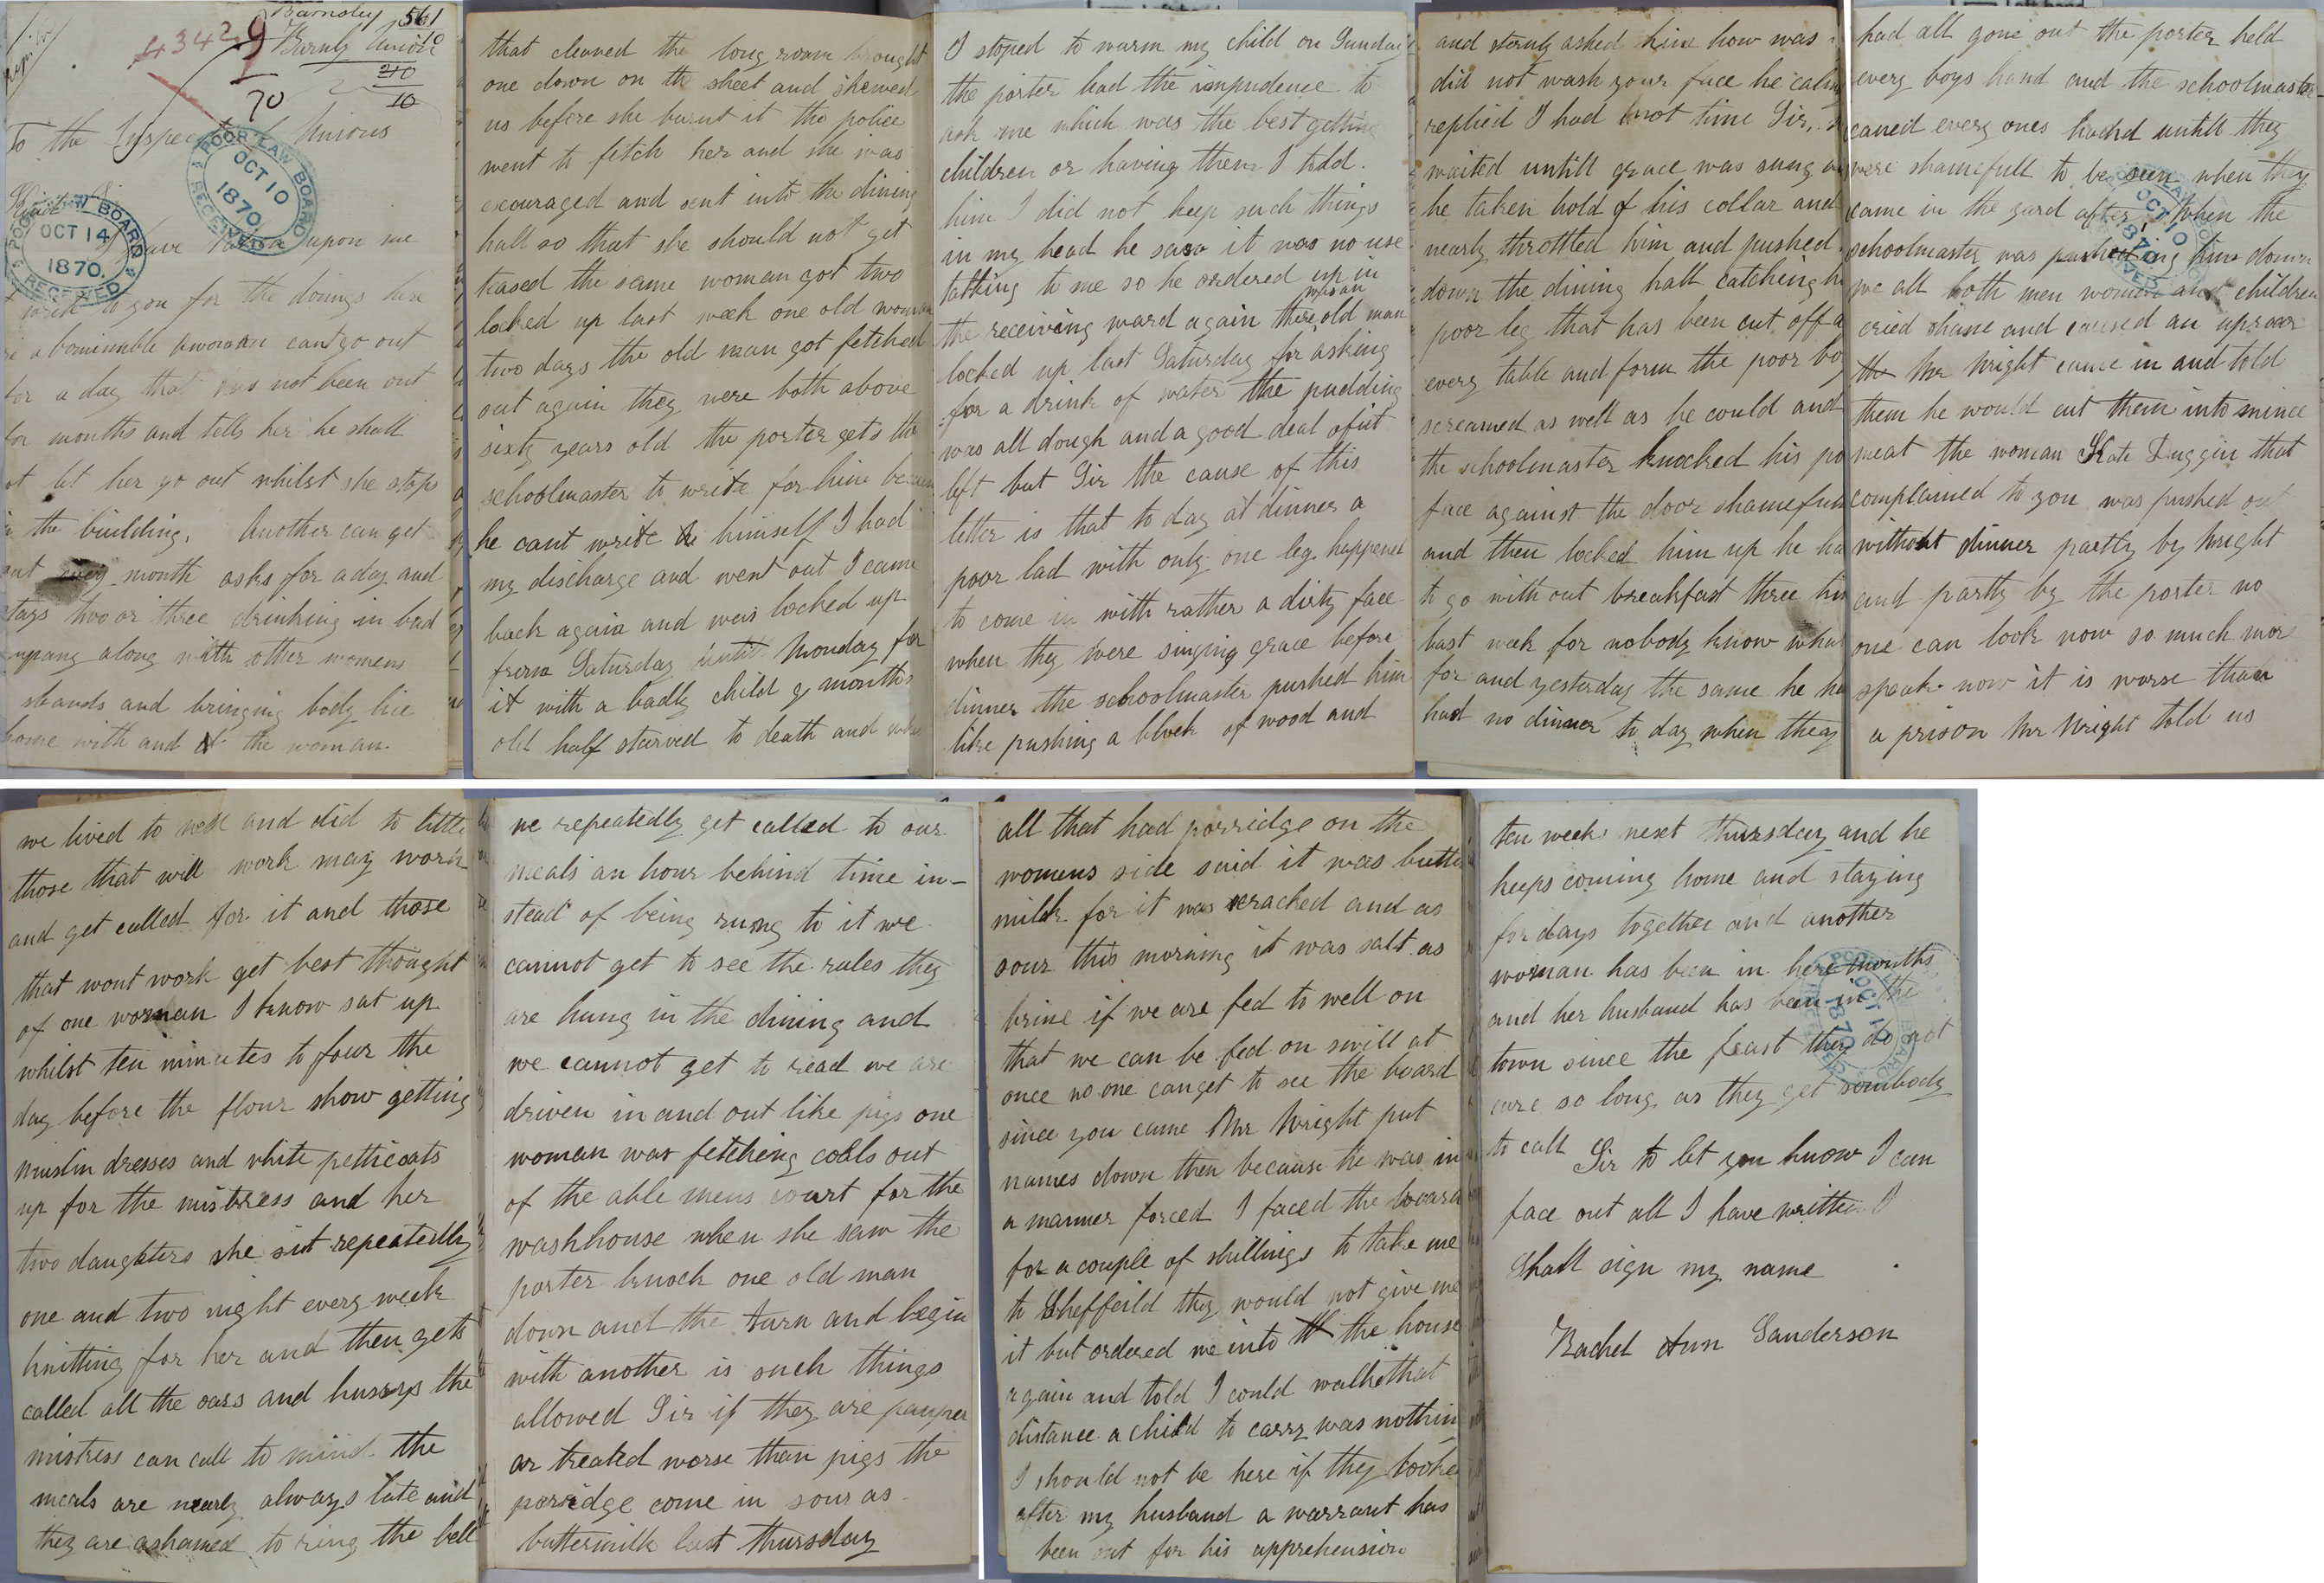 43429
Barnsley 561
Barnsly Union
10
210
10
70
To the Inspector of Unions
POOR LAW BOARD
OCT 10
1870
RECEIVED
Kind Sir
POOR LAW BOARD
OCT 14
1870.
RECEIVED
I have taken upon me
write to you for the doings here
abominable a woman cant go out
for a day that has not been out
for months and tells her he shall
not let her go out whilst she stops
in the building. Another can get
out every month asks for a day and
stays two or three drinking in bad
company along with other womens
husbands and bringing body lice
home with and the woman.
that cleaned the long room brought
one down on the sheet and shewed
us before she burnt it the police
went to fetch her and she was
encouraged and sent into the dining
hall so that she should not get
teased the same woman got two
locked up last week one old woman
two days the old man got fetched
out again they were both above
sixty years old the porter gets the
schoolmaster to write for him because
he cant write himself I had
my discharge and went out I came
back again and was locked up
from Saturday untill Monday for
it with a badly child 9 months
old half starved to death and when
I stoped to warm my child on Sunday
the porter had the impudence to
ask me which was the best getting
children or having them I told
him I did not keep such things
in my head he saw it was no use
talking to me so he ordered up in
the receiving ward again there old man
woman
locked up last Saturday for asking
for a drink of water the pudding
was all dough and a good deal of it
left but Sir the cause of this
letter is that to day at dinner a
poor lad with only one leg happened
to come in with rather a dirty face
when they were singing grace before
dinner the schoolmaster pushed him
like pushing a block of wood and
and sternly asked him how was
did not wash your face he calmly
replied I had not time Sir.
waited untill grace was sung
he taken hold of his collar and
nearly throttled him and pushed
down the dining hall catching
poor leg that has been cut off
every table and form the poor boy
screamed as well as he could and
the schoolmaster knocked his poor
face against the door shamefull
and then locked him up he ha
to go without breakfast three
last week for nobody know what
for and yesterday the same he ha
had no dinner to day when they
had all gone out the porter held
every boys hand and the schoolmaster
caned every ones hand untill they
were shamefull to be seen when they
came in the yard after. When the
schoolmaster was pushing him down
we all both men women and children
cried shame and caused an uproar
the Mr Wright came in and told
them he would cut them into mince
meat the woman Kate Duggin that
complained to you was pushed out
without dinner partly by Wright
and partly by the porter no
one can look now so much more
speak now it is worse than
a prison Mr Wright told us
we lived to well and did to little
those that will work may work
and get called for it and those
that wont work get best thought
of one woman I know sat up
whilst ten minutes to four the
day before the flour show getting
muslin dresses and white petticoats
up for the mistress and her
two daughters she sit repeatedly
one and two night every week
knitting for her and then gets
called all the oars and hussys the
mistress can call to mind the
meals are nearly always late and
they are ashamed to ring the bell
we repeatedly get called to our
meals an hour behind time in-
stead of being rung to it we
cannot get to see the rules they
are hung in the dining and
we cannot get to read we are
driven in and out like pigs one
woman was fetching coals out
of the able mens court for the
washhouse when she saw the
porter knock one old man
down and the turn and begin
with another is such things
allowed Sir if they are pauper
ar treated worse than pigs the
porridge come in sour as
buttermilk last thursday
all that had porridge on the
womens side said it was butter
milk for it was cracked and as
sour this morning it was salt as
brine if we are fed to well on
that we can be fed on swill at
once no one can get to see the board
since you came Mr Wright put
names down then because he was in
a manner forced I faced the board
for a couple of shillings to take me
to Sheffeild they would not give me
it but ordered me into the house
again and told I could walk that
distance a child to carry was nothing
I should not be here if they looked
after my husband a warrant has
been out for his apprehension
ten weeks next thursday and he
keeps coming home and staying
for days together and another
woman has been in here months
and her husband has been in the
town since the feast they do not
care so long as they get sombody
to call
Sir to let you know I can
face out all I have written I
shall sign my name
Rachel Ann Sanderson